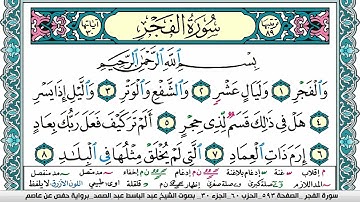 سُورَةُ الفَجْرِ
بِسْمِ اللَّهِ الرَّحْمَٰنِ الرَّحِيمِ
وَالْفَجْرِ ١ وَلَيَالٍ عَشْرٍ ٢ وَالشَّفْعِ وَالْوَتْرِ ٣ وَاللَّيْلِ إِذَا يَسْرِ
٤ هَلْ فِي ذَٰلِكَ قَسَمٌ لِّذِي حِجْرٍ ٥ أَلَمْ تَرَ كَيْفَ فَعَلَ رَبُّكَ بِعَادٍ
٦ إِرَمَ ذَاتِ الْعِمَادِ ٧ الَّتِي لَمْ يُخْلَقْ مِثْلُهَا فِي الْبِلَادِ ٨
سورة الفجر . الصفحة ٥٩٣ . الحزب ٦٠ . الجزء ٣٠ . بصوت الشيخ عبد الباسط عبد الصمد . برواية حفص عن عاصم